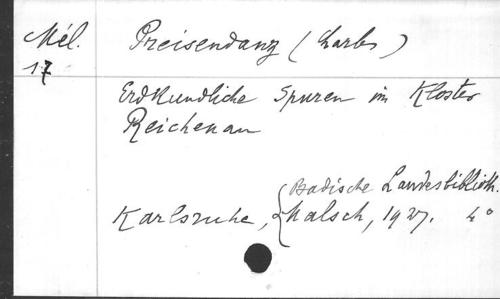 Mél. Preisendanz (Karls)
17
Erdkundliche Spuren im Kloster
Reichenau
Badische Landesbiblioth.
Karlsruhe, Malsch, 1927. 4°